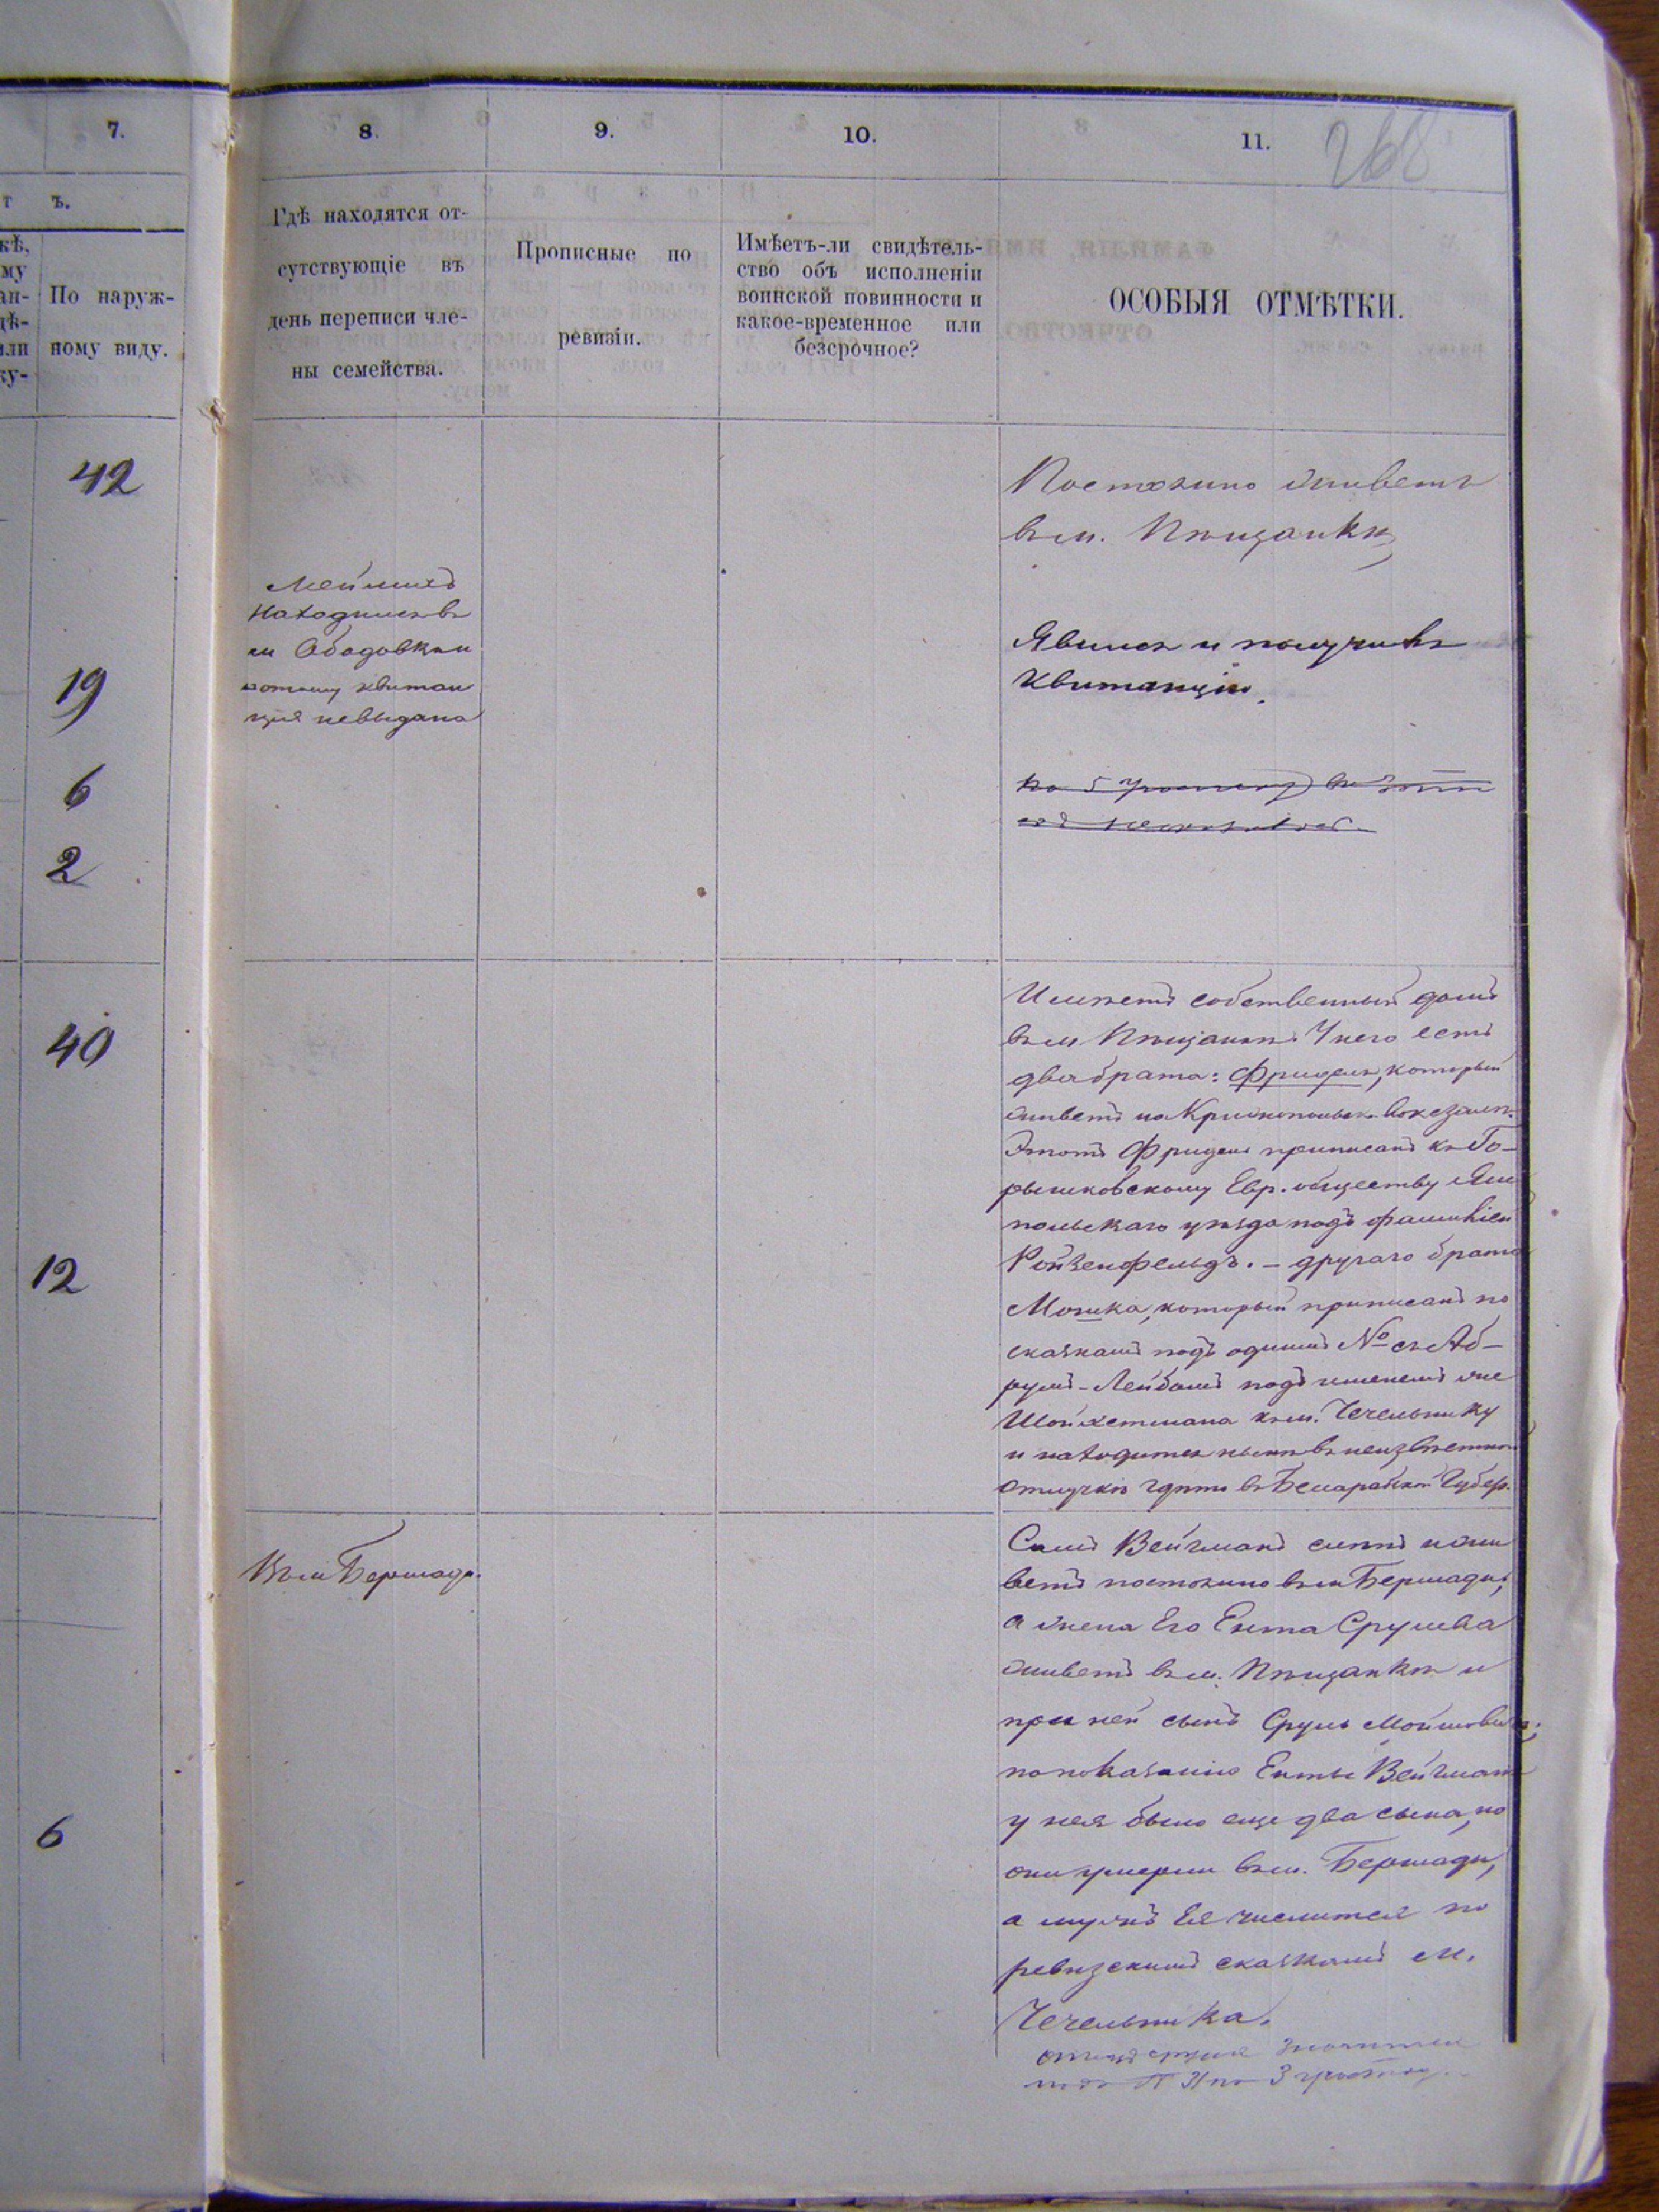 7.
8.
9.
10.
11.
268
ъ.
По наруж-
ному виду.
Гдѣ находятся от-
сутствующіе въ
день переписи чле-
ны семейства.
Прописные по
ревизіи.
Имѣетъ-ли свидѣтель-
ство объ исполненіи
воинской повинности и
какое-временное или
безсрочное?
ОСОБЫЯ ОТМѢТКИ.
42
Постоянно живетъ
въ м. Пѣщанкѣ
находится въ
м Ободовкѣ и
потому квитан
ція невыдана
19
Явился и получилъ
Квитанцію.
6
2
40
Имѣетъ собственный домъ
въ м Пѣщанкѣ. У него есть
два брата: Фридель, который
живетъ на Крижопольск. вокзалѣ.
Этотъ Фридель приписанъ къ Го-
рышковскому Евр. обществу Ям
польскаго уѣзда подъ фамиліей
Ройзенфельдъ. – другаго брата
12
Мошка, который приписанъ по
сказкамъ подъ однимъ № съ Аб-
румъ-Лейбомъ подъ именемъ же
Шойхетмана къ м. Чечельнику
и находится нынѣ въ неизвѣстной
отлучкѣ гдѣто въ Бессарабской Губер.
Въ м Бершади.
Самъ Вейгманъ слѣпъ и жи
ветъ постоянно въ м Бершади,
а жена Его Ента Срулева
живетъ въ м. Пѣщанкѣ и
при ней сынъ Сруль Мошковъ;
по показанію Енты Вейгманъ
6
у нея было еще два сына, но
они умерли въ м. Бершади,
а мужъ Ея числится по
ревизскимъ сказкамъ м.
Чечельника.
отецъ Сруля значится
по 3 участку.